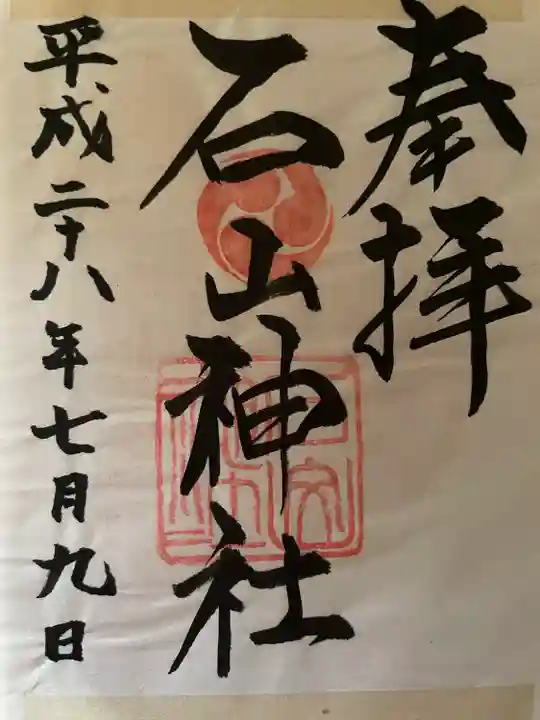 奉拝
石山神社
平成二十八年七月九日